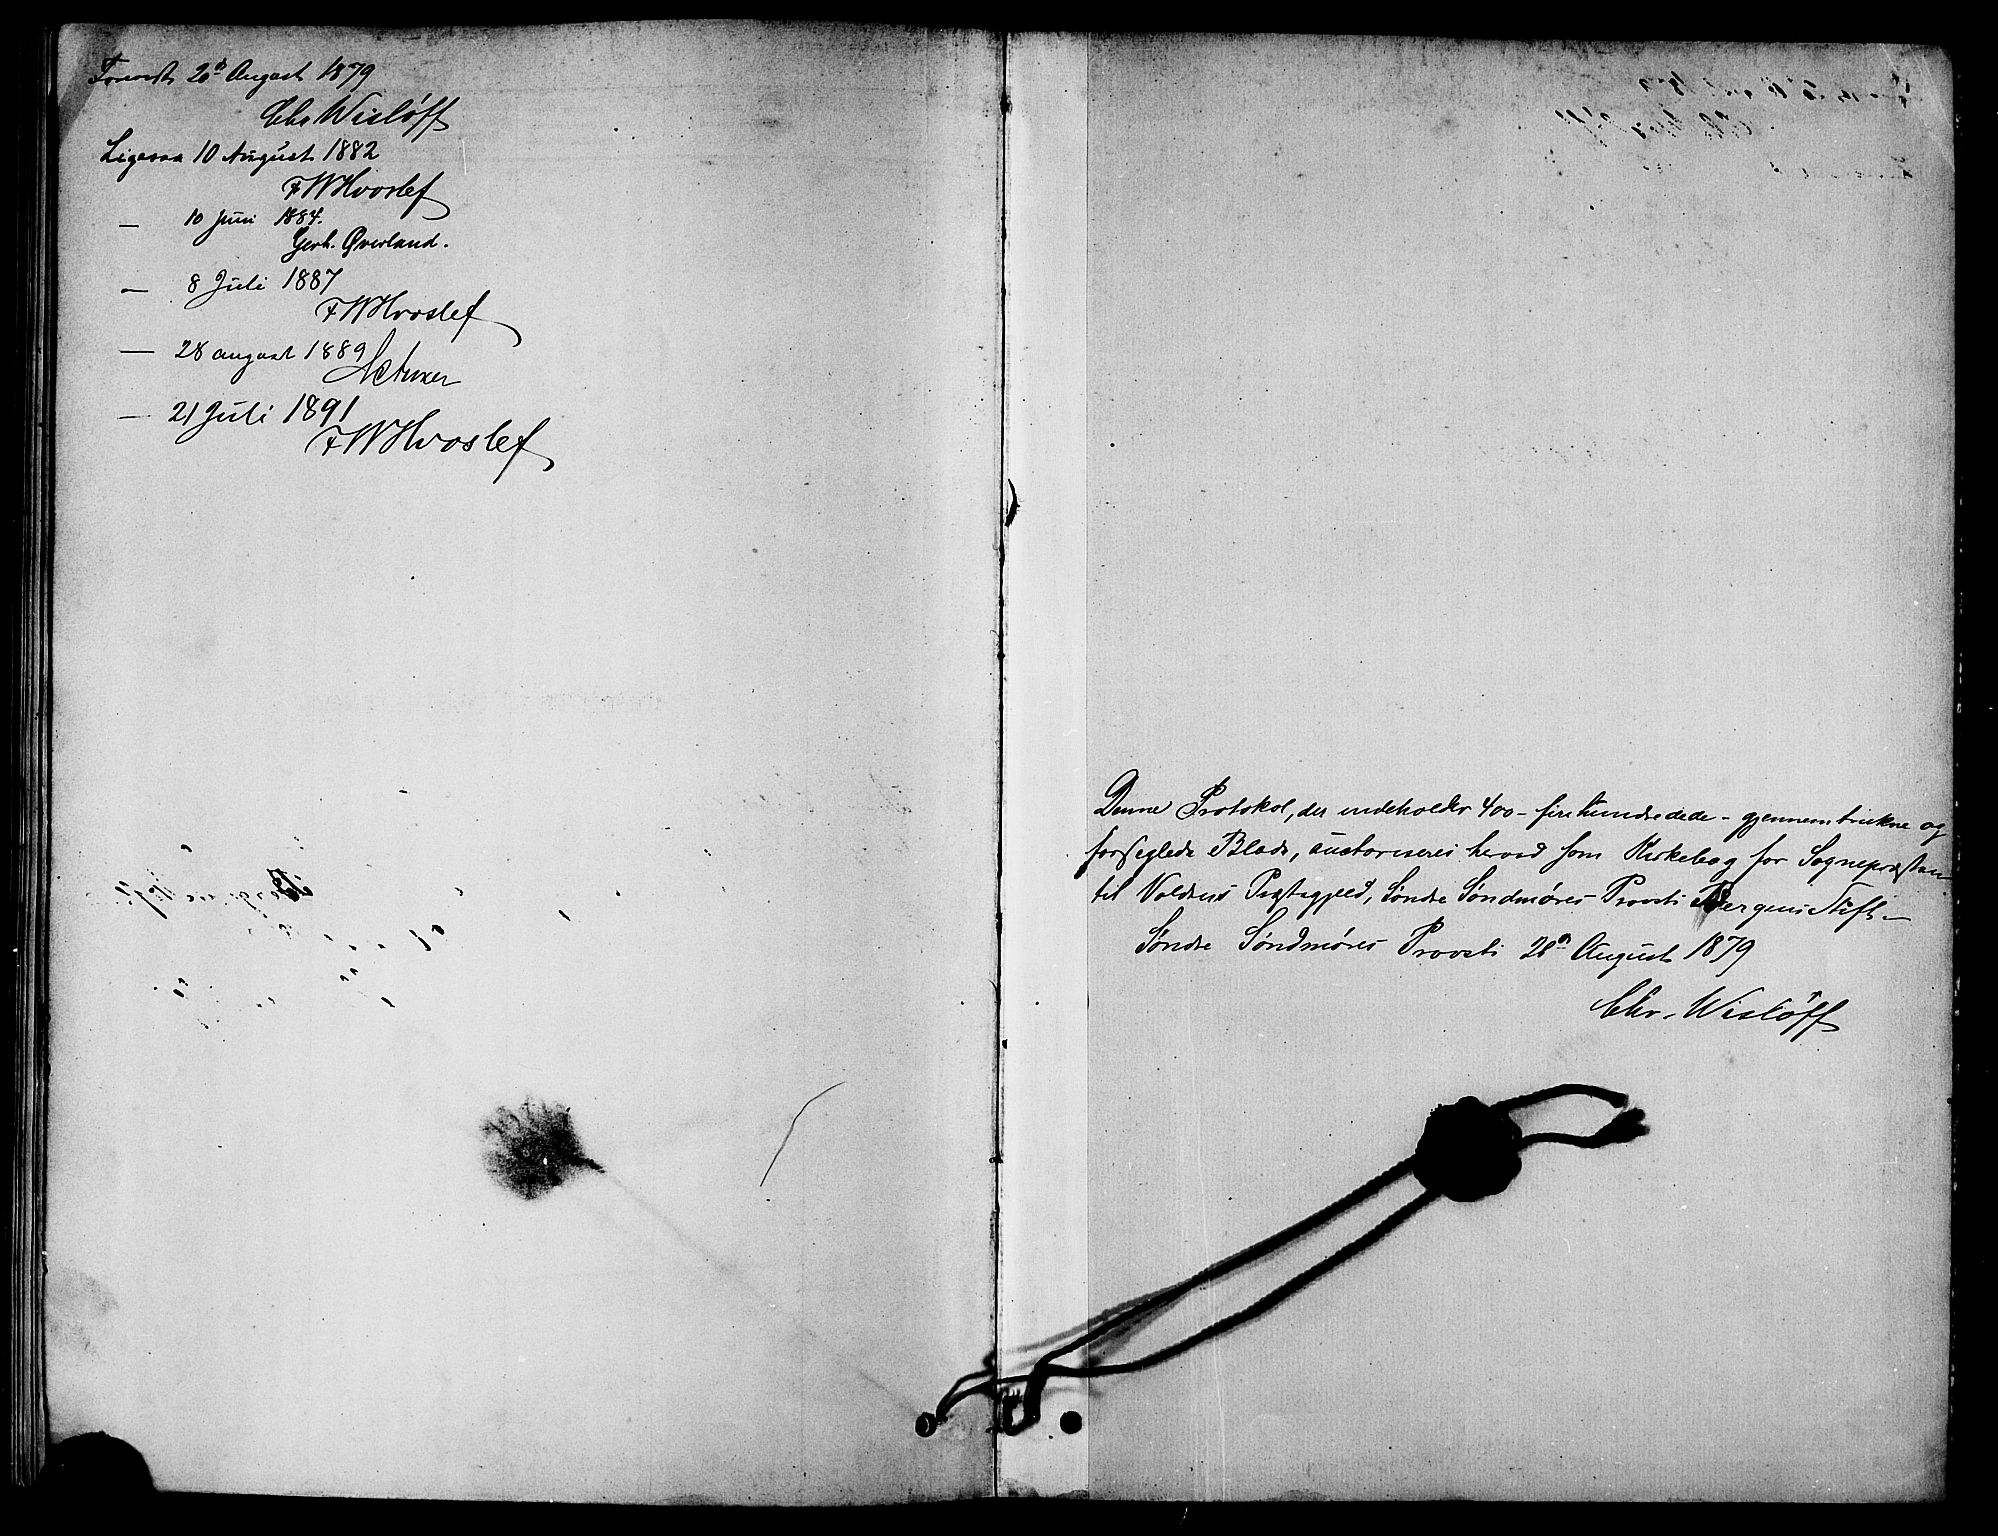 Forevist 20de August 1879
Chr Wisløff
Ligesaa 10 August 1882
FWHvoslef
— 10 Juni 1884.
Gerh. Øverland.
— 8 Juli 1887
FWHvoslef
— 28 august 1889
— 21 Juli 1891
FWHvoslef
Denne Protokol, der indeholder 400 - fire hundrede - gjennemtrukne og
forseglede Blade, auctoriseres herved som Kirkebog for Sognepræsten
til Voldens Prestegjeld, Søndre Søndmøres Provsti Bergens Stift -
Søndre Søndmøres Provsti 20de August 1879
Chr. Wisløff